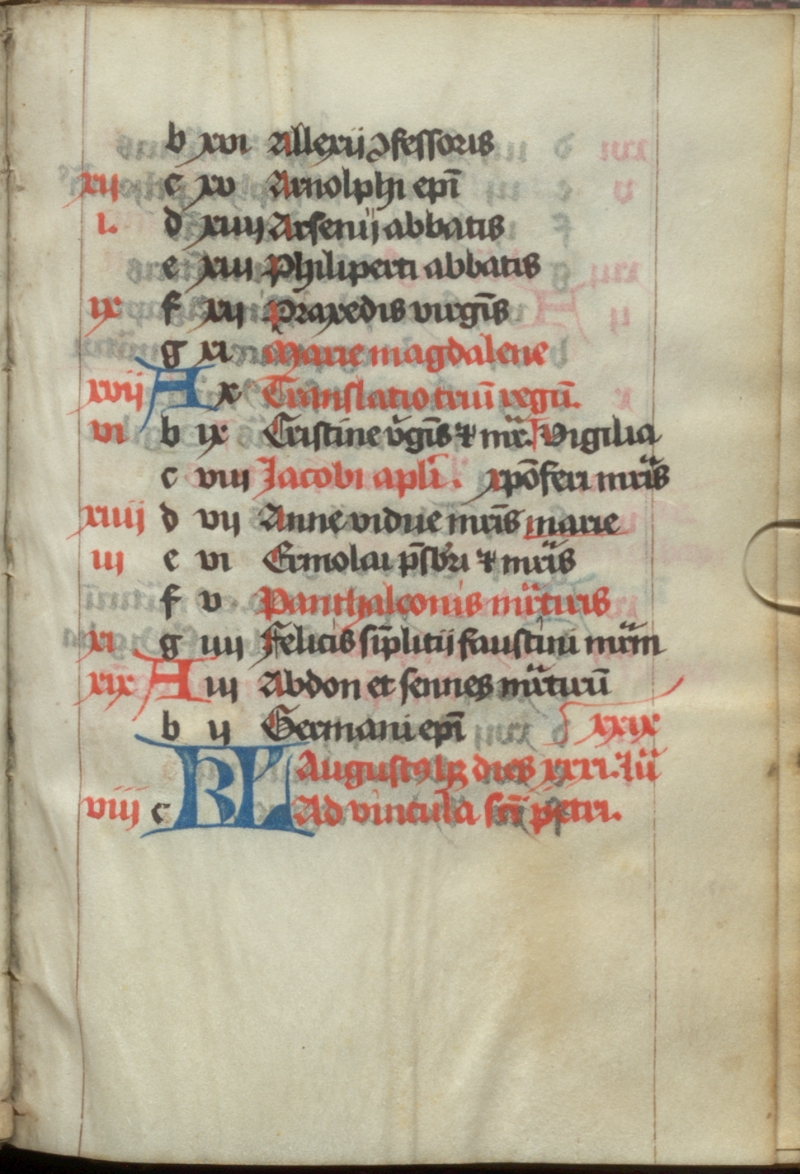 b xvi Allexii ꝯfessoris
xii c xv Arnolphi epī
i. d xiiii Arsenij abbatis
e xiii Philiperti abbatis
ix f xii Praxedis virgīs
g xi Marie magdalene
xvii A x Translatio triū regū.
vi b ix Cristine v̄gīs ⁊ mr̄. Vigilia
c viii Jacobi apl̄i. xpōferi mr̄is
xiiii d vii Anne vidue mr̄is marie
iii e vi Ermolai p̄sbri ⁊ mr̄is
f v Panthaleonis mr̄tiris
xi g iiii Felicis sīplitij faustini mr̄m
xix A iii Abdon et sennes mr̄tirū
b ii Germani epī xxix
KL Augustꝰ hꝫ dies xxxi. lū
viii c Ad vincula scī petri.